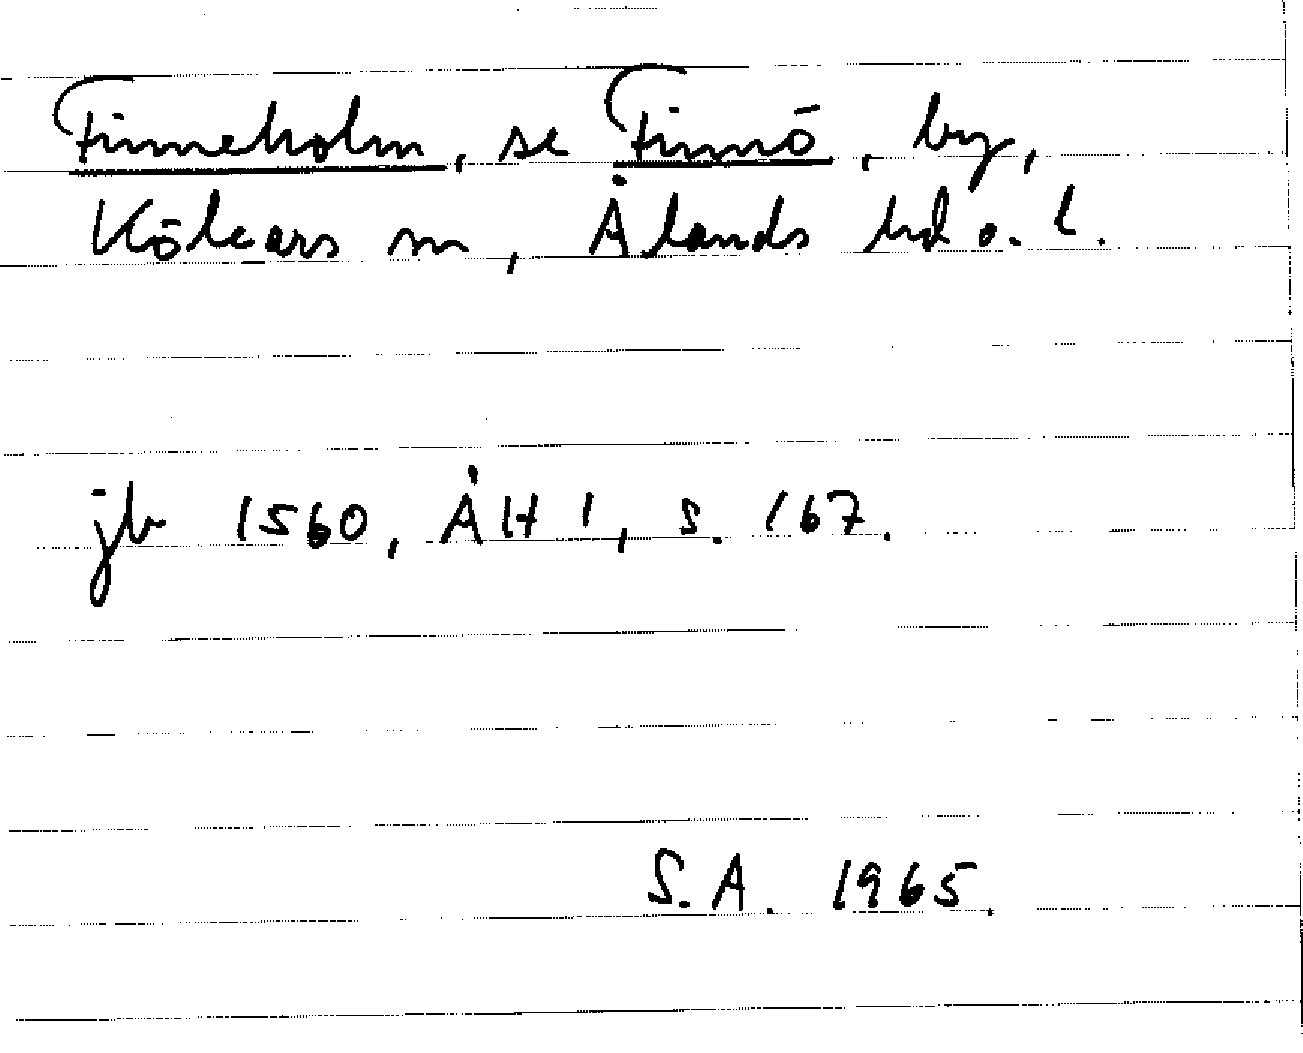 Finneholm, se Finnö, by,
Kökars sn, Ålands hd o. l.
jb 1560, ÅH 1, s. 167.
S.A. 1965.